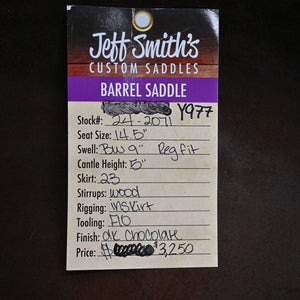 Jeff Smith's
CUSTOM SADDLES
BARREL SADDLE
Y977
Stock#: 24-2071
Seat Size: 14.5"
Swell: BW 9" Reg fit
Cantle Height: 5"
Skirt: 23
Stirrups: wood
Rigging: inskirt
Tooling:
Finish: dk chocolate
Price: $3,250